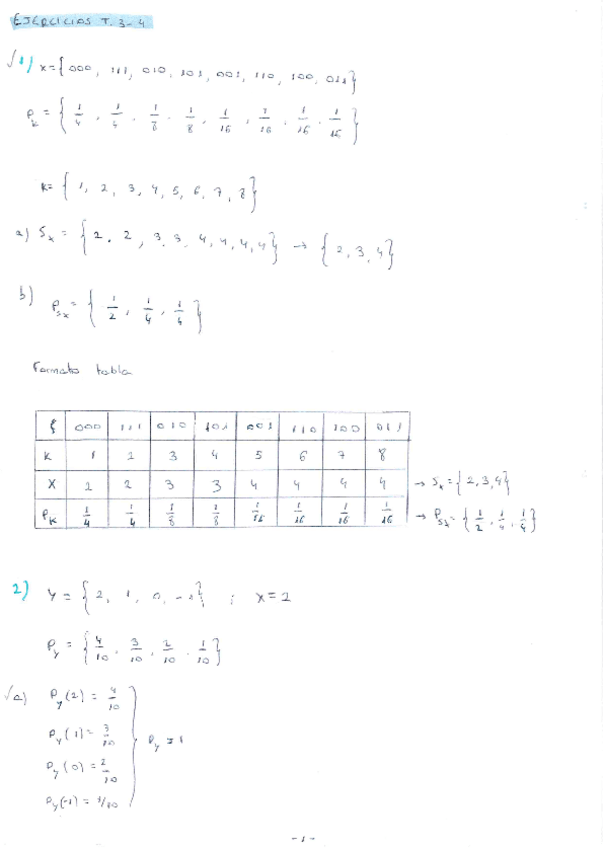 EJERCICIOS T. 3-4
1) x = { 000, 111, 010, 101, 001, 110, 100, 011 }
P_K = { 1/4, 1/4, 1/8, 1/8, 1/16, 1/16, 1/16, 1/16 }
K = { 1, 2, 3, 4, 5, 6, 7, 8 }
a) S_x = { 2, 2, 3, 3, 4, 4, 4, 4 } → { 2, 3, 4 }
b) P_Sx = { 1/2, 1/4, 1/4 }
Formato tabla
ξ 000 111 010 101 001 110 100 011
K 1 2 3 4 5 6 7 8
X 2 2 3 3 4 4 4 4 → S_x = { 2, 3, 4 }
P_K 1/4 1/4 1/8 1/8 1/16 1/16 1/16 1/16 → P_Sx = { 1/2, 1/4, 1/4 }
2) Y = { 2, 1, 0, } ;
P_Y = { 4/10, 3/10, 2/10, 1/10 }
a) P_Y (2) = 4/10
P_Y (1) = 3/10
P_Y (0) = 2/10
P_Y (-1) = 1/10
- 1 -